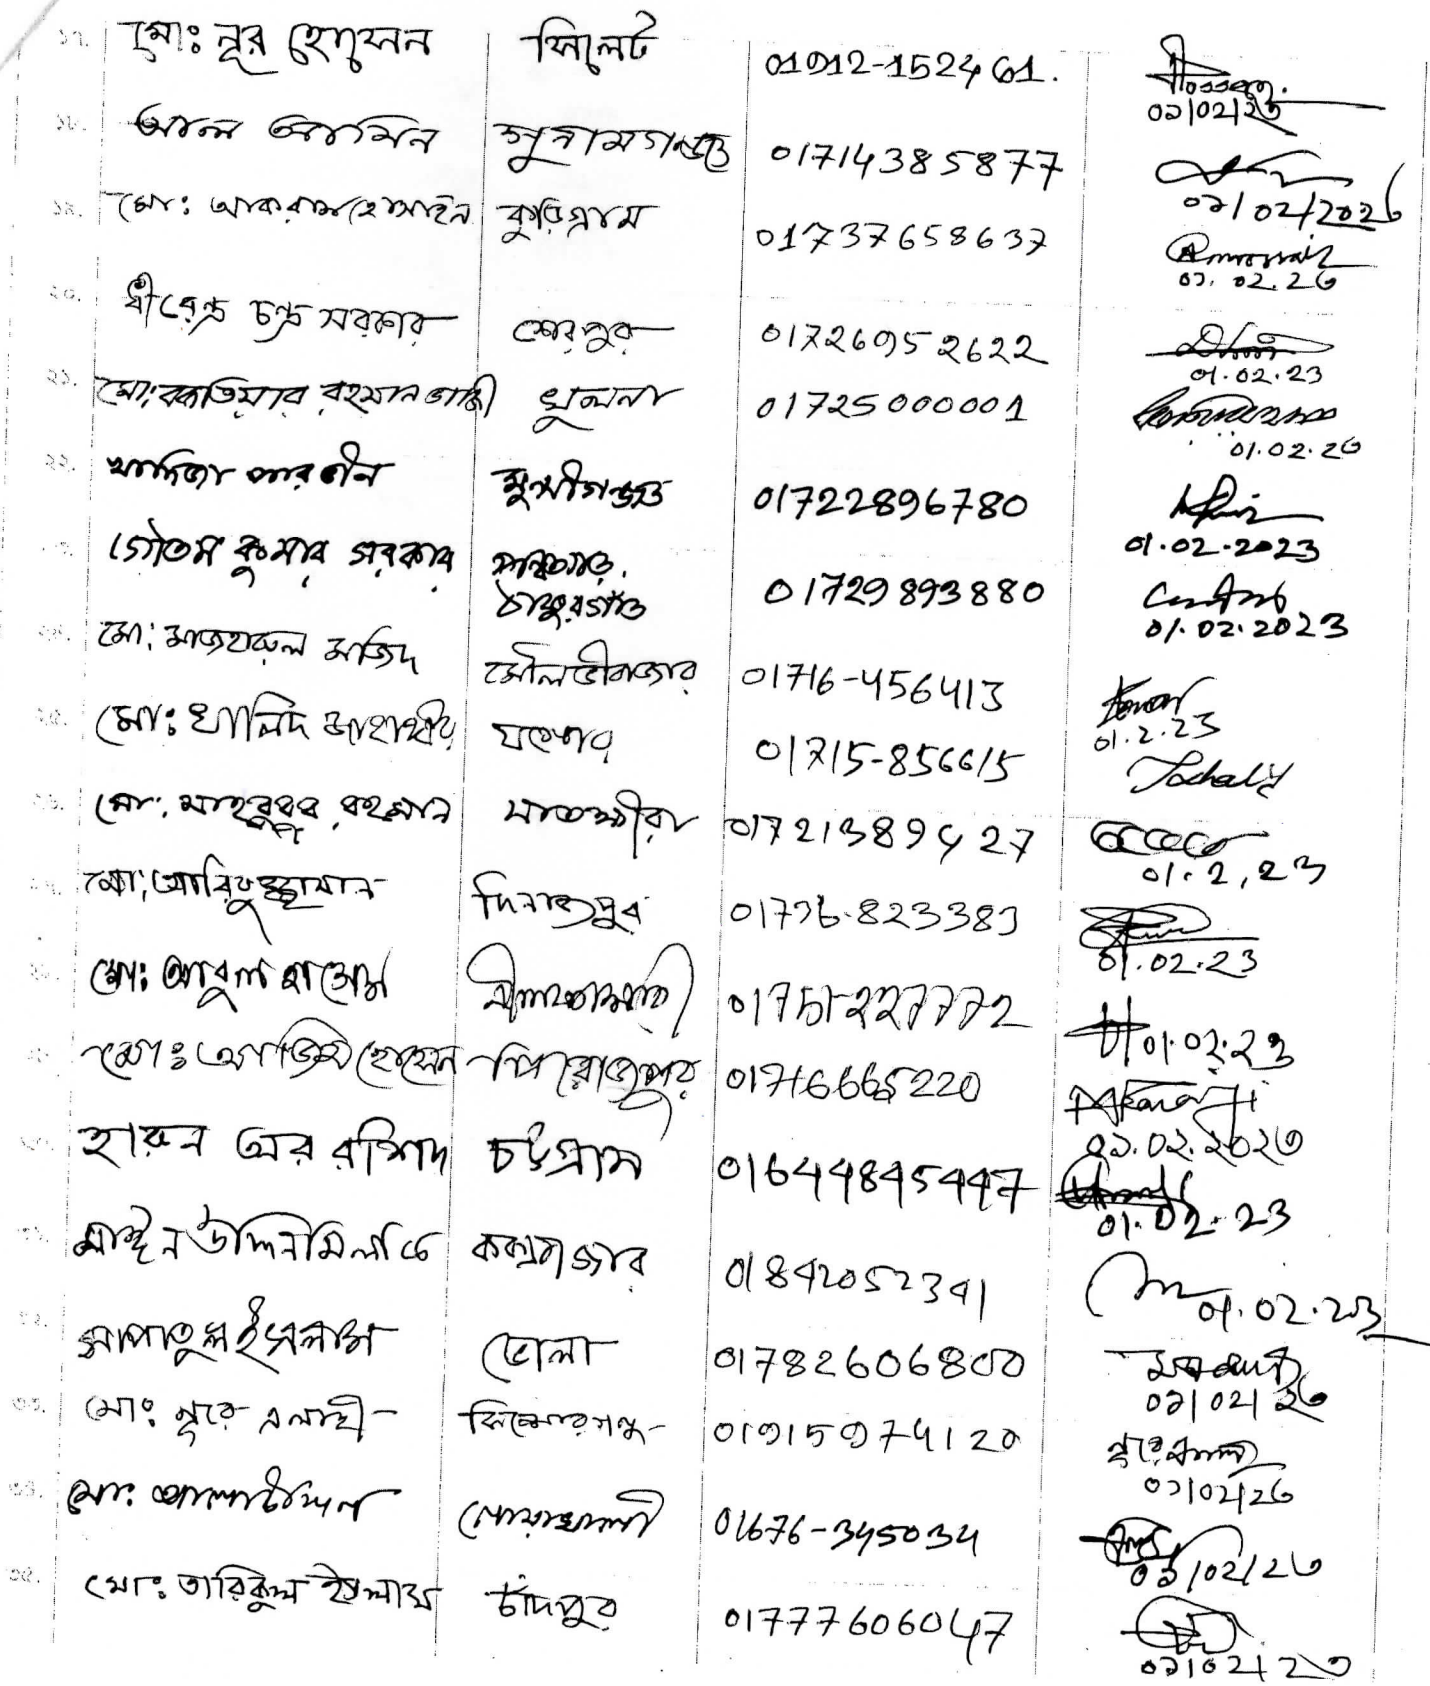 ১৭. মোঃ নূর হোসেন সিলেট 01912-152461.
০১/02/২৩
১৮. আল আমিন সুনামগঞ্জ 01714385877
০১/০২/২০২৩
১৯. মোঃ আকরাম হোসাইন কুড়িগ্রাম 01737658637
০১. ০২.২৩
২০. ধীরেন্দ্র চন্দ্র সরকার শেরপুর 01726952622
01.02.23
২১. মোঃ বকতিয়ার রহমান গাজী খুলনা 01725000001
০১.০২.২৩
২২. খাদিজা পারভীন মুন্সীগঞ্জ 01722896780
01.02.2023
গৌতম কুমার সরকার
ঠাকুরগাঁও 01729893880
01.02.2023
মোঃ মাজহারুল মজিদ মৌলভীবাজার 01716-456413
01.2.23
মোঃ খালিদ জাহাঙ্গীর যশোর 01715-856615
মোঃ মাহবুবুর রহমান সাতক্ষীরা 01721389427
01.2.23
মোঃ আরিফুজ্জামান দিনাজপুর 01736-823383
01.02.23
মোঃ আবুল হাসেম নীলফামারী 01751227772
01.02.23
মোঃ আজিম হোসেন পিরোজপুর 01716665220
০১.০২.২০২৩
হারুন অর রশিদ চট্টগ্রাম 01644845447
01.02.23
মাঈন উদ্দিন মিলকি কক্সবাজার 01842052341
01.02.23
সাপাতুল ইসলাম ভোলা 01782606800
০১/০২/২৩
৩৩. মোঃ নূরে এলাহী কিশোরগঞ্জ 01915974120
নূরে এলাহী
০১/০২/২৩
৩৪. মোঃ আলাউদ্দিন নোয়াখালী 01676-345034
০১/০২/২৩
৩৫. মোঃ তারিকুল ইসলাম চাঁদপুর 01777606047
০১/০২/২৩